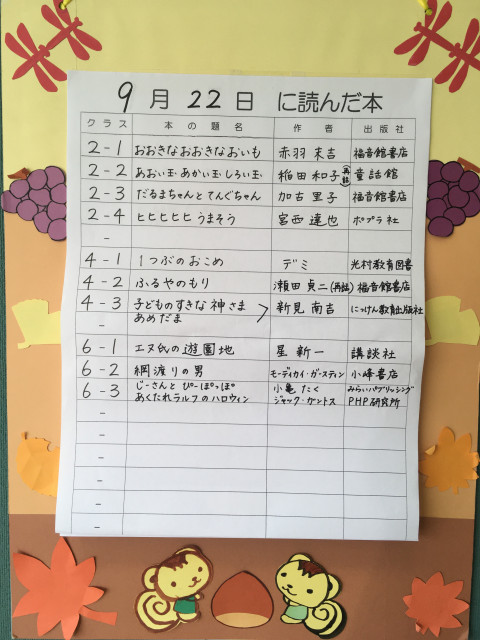 9月22日 に読んだ本
クラス 本の題名 作者 出版社
2-1 おおきなおおきなおいも 赤羽末吉 福音館書店
2-2 あおい玉あかい玉しろい玉 稲田和子(再話) 童話館
2-3 だるまちゃんとてんぐちゃん 加古里子 福音館書店
2-4 ヒヒヒヒヒうまそう 宮西達也 ポプラ社
-
4-1 1つぶのおこめ デミ 光村教育図書
4-2 ふるやのもり 瀬田貞二(再話) 福音館書店
4-3 子どものすきな神さま 新見南吉 にっけん教育出版社
- あめだま
6-1 エヌ氏の遊園地 星新一 講談社
6-2 綱渡りの男 モーディカイ・ガースティン 小峰書店
6-3 じーさんとぴーぽっぽ 小亀たく みらいパブリッシング
あくたれラルフのハロウィン ジャック・ガントス PHP研究所
-
-
-
-
-
-